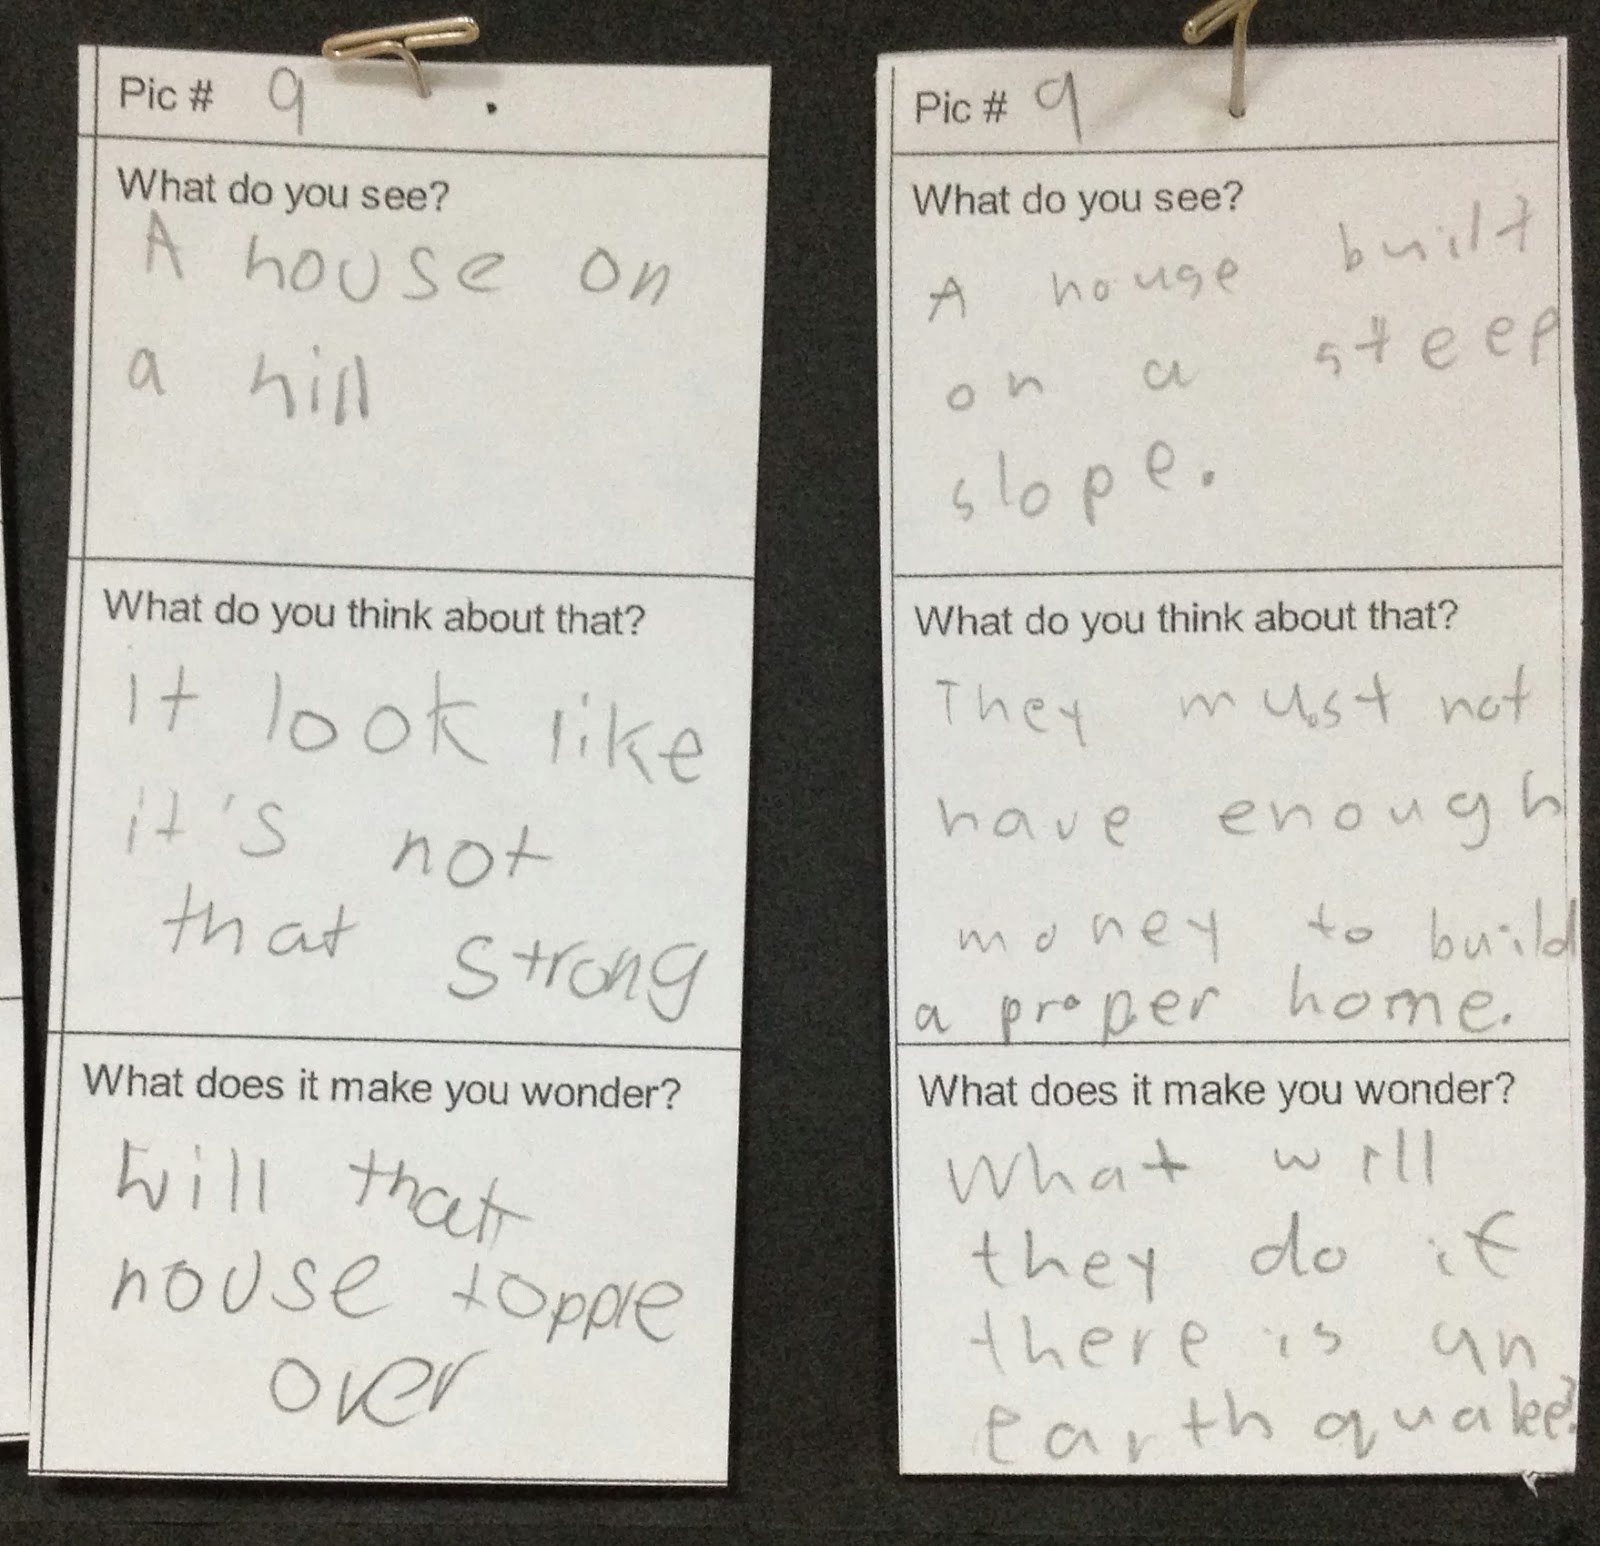 Pic # 9
What do you see?
A house on
a hill
What do you think about that?
it look like
it's not
that strong
What does it make you wonder?
will that
house topple
over
Pic # 9
What do you see?
A house built
on a steep
slope.
What do you think about that?
They must not
have enough
money to build
a proper home.
What does it make you wonder?
What will
they do if
there is an
earthquake?